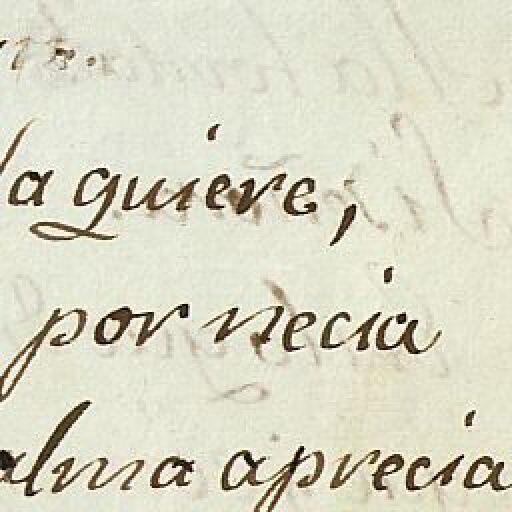 la quiere;
por necia
alma aprecia